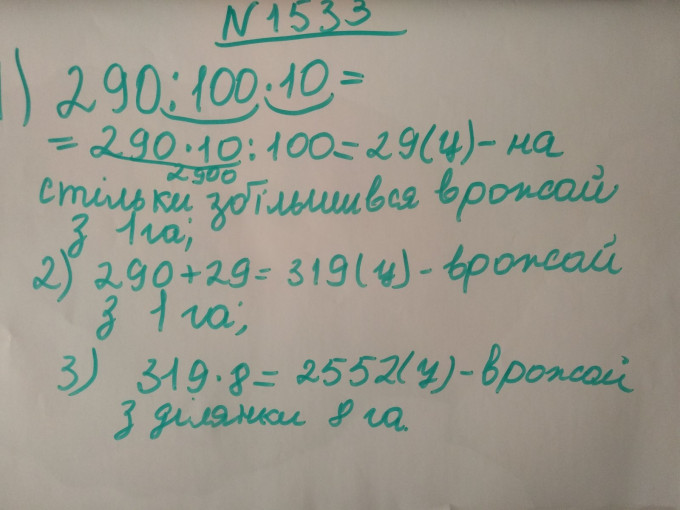 N 1533
1) 290:100·10=
= 290·10:100=29(ц)- на
2900
стільки збільшився врожай
з 1га;
2) 290+29= 319(ц)- врожай
з 1 га;
3) 319·8= 2552(ц)-врожай
з ділянки 8 га.